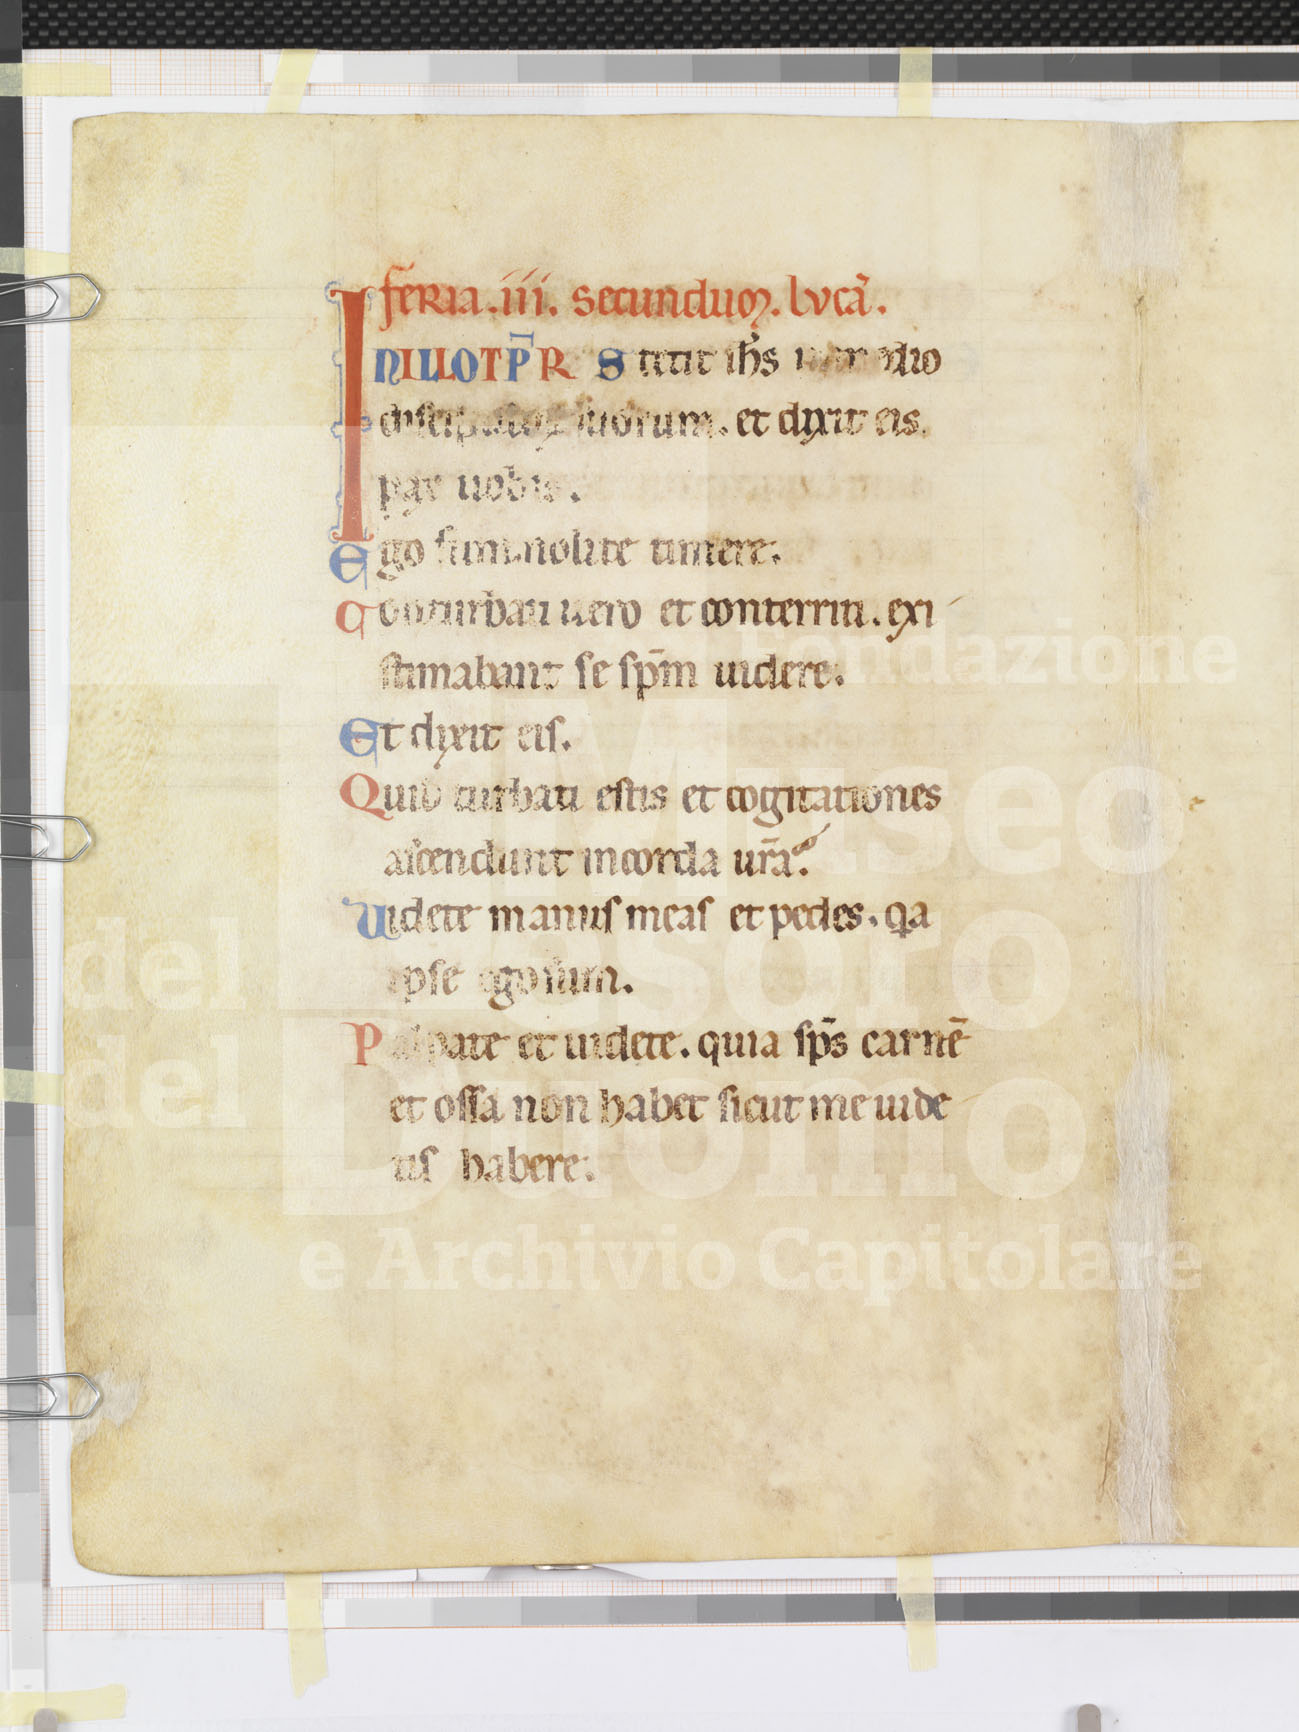 feria .iii. secundum. lucã.
IN ILLO TP̄R Stetit ihs in medio
discipulorum suorum. et dixit eis.
pax uobis.
Ego sum. nolite timere.
Conturbati uero et conterriti. exi
stimabant se sp̄m uidere.
Et dixit eis.
Quid turbati estis et cogitationes
ascendunt in corda ur̃a.
Uidete manus meas et pedes. qa
ipse ego sum.
Palpate et uidete. quia sp̄s carnē
et ossa non habet sicut me uide
tis habere.
Fondazione
Museo
del Tesoro
del Duomo
e Archivio Capitolare